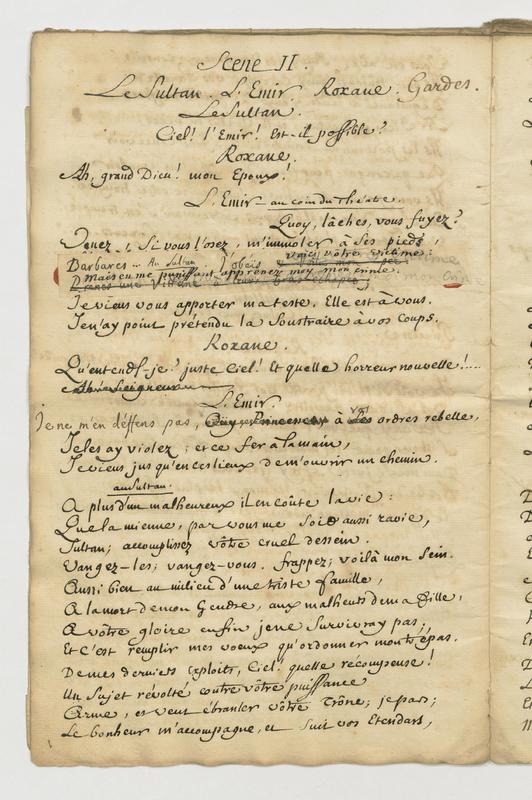 Scene II.
Le Sultan. L'Emir Roxane. Gardes.
Le Sultan.
Ciel! l'Emir! Est-il possible?
Roxane.
Ah, grand Dieu! mon Epoux!
L'Emir au coin du théatre.
Quoy, lâches, vous fuyez?
Venez, si vous l'osez, m'immoler à ses pieds,
voicy votre victime:
Barbares... Au Sultan. J'obéis
Mais en me punissant apprenez moy mon crime.
Je viens vous apporter ma teste. Elle est à vous.
Je n'ay point prétendu la soustraire à vos coups.
Roxane.
Qu'entends-je? juste Ciel! Et quelle horreur nouvelle!....
Ah! Seigneur
L'Emir.
Je ne m'en déffens pas, Princesse à vos ordres rebelle,
Je les ay violez; et ce fer à la main,
Je viens jusqu'en ces lieux de m'ouvrir un chemin.
au Sultan.
A plus d'un malheureux il en coûte la vie:
Que la mienne, par vous me soit aussi ravie,
Sultan; accomplissez vôtre cruel dessein.
Vangez-les; vangez-vous. frappez; voilà mon sein.
Aussi bien au milieu d'une triste famille,
A la mort de mon Gendre, aux malheurs de ma Fille,
A vôtre gloire enfin je ne survivray pas;
Et c'est remplir mes voeux qu'ordonner mon trépas.
De mes derniers exploits, Ciel! quelle récompense!
Un Sujet révolté contre vôtre puissance
Arme, et veut ébranler vôtre Trône; je pars;
Le bonheur m'accompagne, et suit vos Etendars,